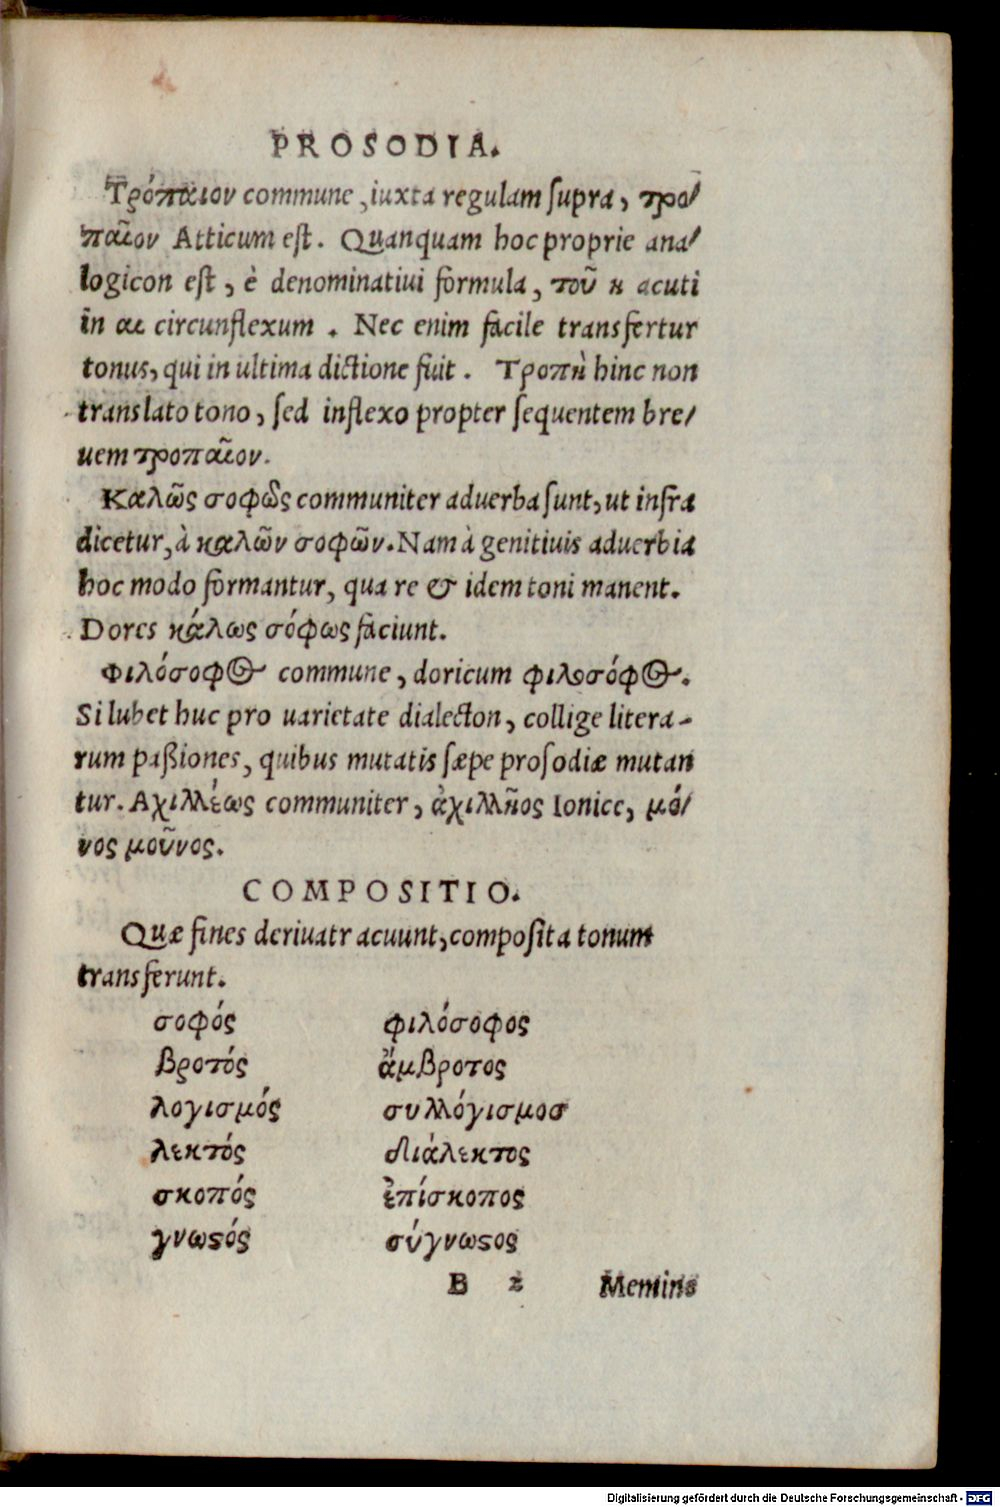 PROSODIA.
Τρόπαιον commune, iuxta regulam ſupra, τρο/
παῖον Atticum eſt. Quanquam hoc proprie ana/
logicon eſt, è denominatiui formula, τοῦ η acuti
in αι circunflexum . Nec enim facile transfertur
tonus, qui in ultima dictione fuit . Τροπὴ hinc non
translato tono, ſed inflexo propter ſequentem bre/
uem τροπαῖον.
Καλῶς σοφῶς communiter aduerba ſunt, ut infra
dicetur, à καλῶν σοφῶν. Nam à genitiuis aduerbia
hoc modo formantur, qua re & idem toni manent.
Dores κάλως σόφως faciunt.
Φιλόσοφος commune, doricum φιλοσόφος.
Si lubet huc pro uarietate dialecton, collige litera-
rum paßiones, quibus mutatis ſæpe proſodiæ mutan
tur. Αχιλλέως communiter, ἀχιλλῆος Ionice, μό/
νος μοῦνος.
COMPOSITIO.
Quæ fines deriuatr acuunt, compoſita tonum
transferunt.
σοφός φιλόσοφος
βροτός ἄμβροτος
λογισμός συλλόγισμοσ
λεκτός διάλεκτος
σκοπός ἐπίσκοπος
γνωϛός σύγνωϛος
B 2 Memins
Digitalisierung gefördert durch die Deutsche Forschungsgemeinschaft - DFG